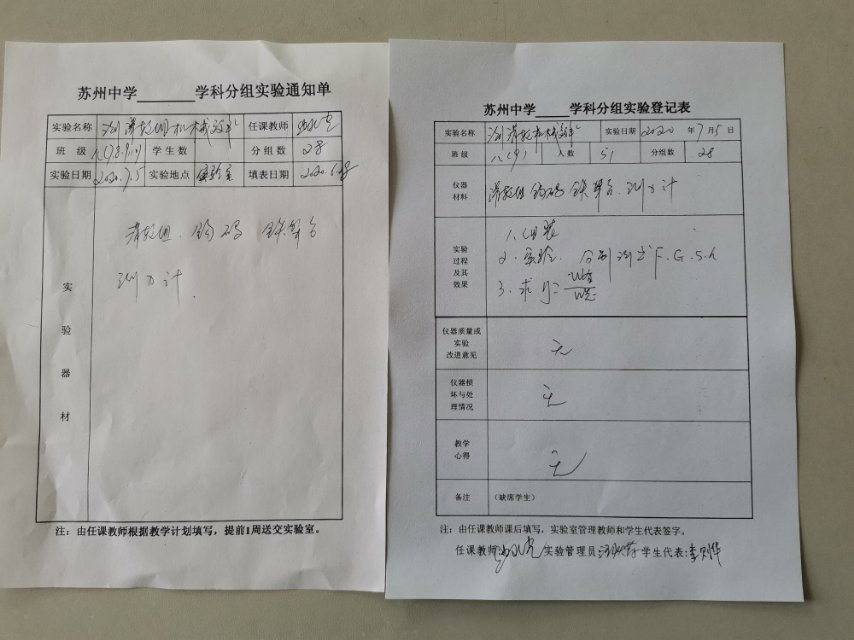 苏州中学______学科分组实验通知单
实验名称 测滑轮组机械效率 任课教师
班 级 学生数 分组数 28
实验日期 2020.7.5 实验地点 实验室 填表日期
实验器材
滑轮组、钩码 铁架台
测力计
注:由任课教师根据教学计划填写,提前1周送交实验室。
苏州中学____学科分组实验登记表
实验名称 测滑轮组机械效率 实验日期 2020 年 7 月 5 日
班级 八(9) 人数 51 分组数 28
仪器材料 滑轮组 钩码 铁架台、测力计
实验过程及其效果
1、组装
2、实验、分别测出F、G、S、h
3、求η=W有/W总
仪器质量或实验改进意见 无
仪器损坏与处理情况 无
教学心得 无
备注 (缺席学生)
注:由任课教师课后填写,实验室管理教师和学生代表签字。
任课教师: 实验管理员: 学生代表: